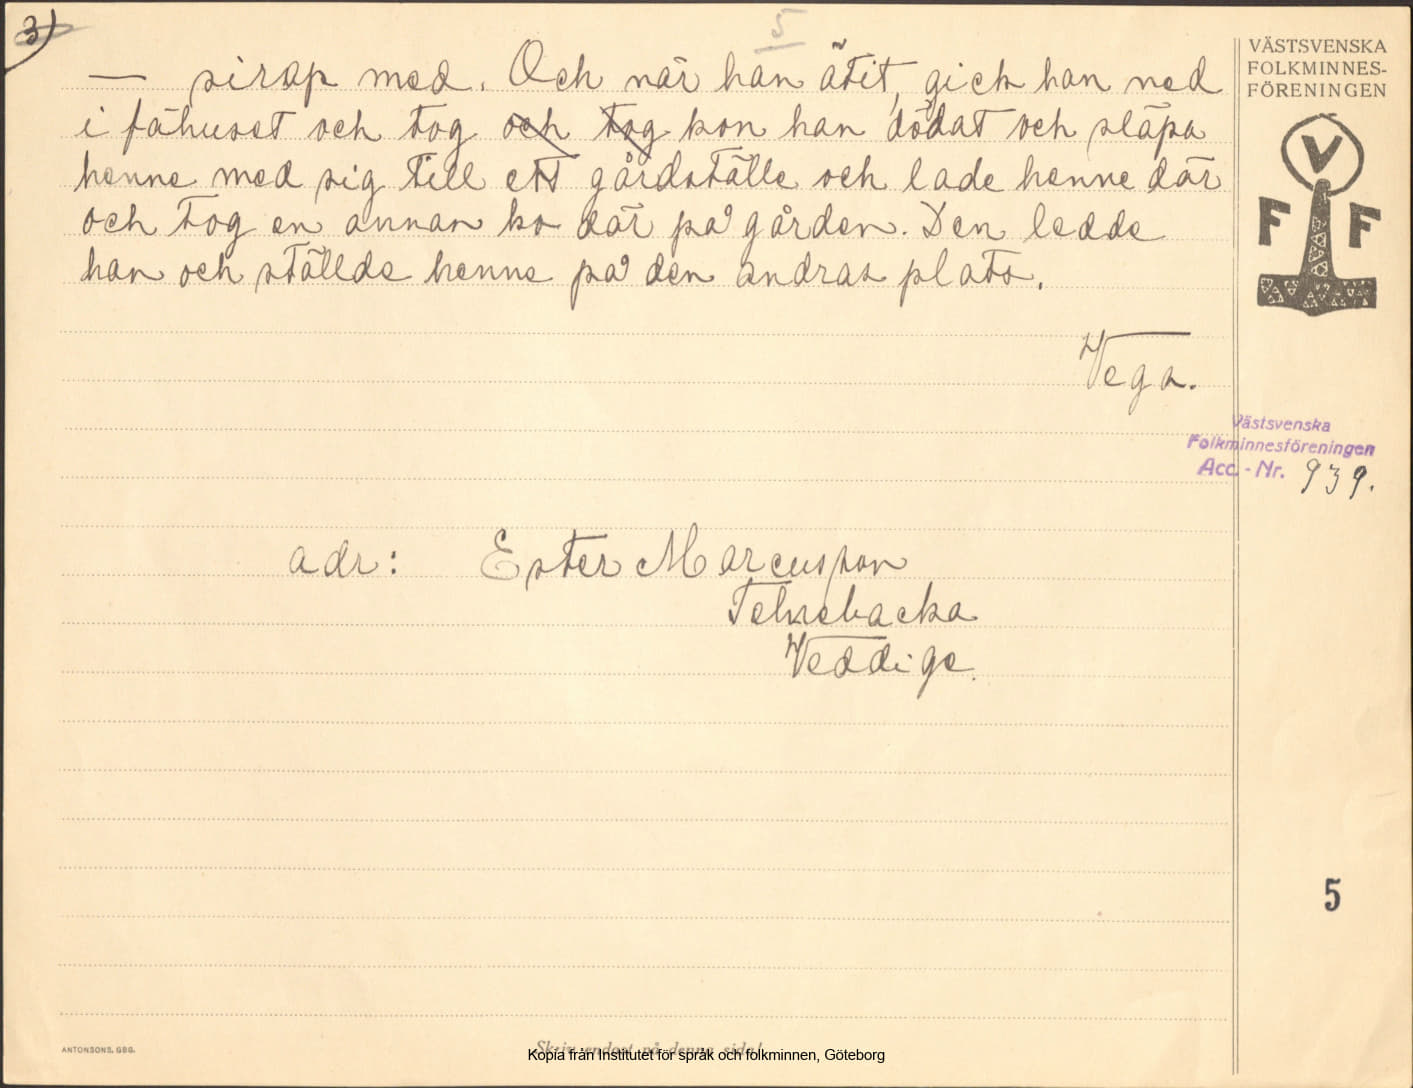 3)
5
— sirap med. Och när han ätit, gick han ned
i fähuset och tog och tog kon han dödat och släpa
henne med sig till ett gårdställe och lade henne där
och tog en annan ko där på gården. Den ledde
han och ställde henne på den andras plats.
Vega.
adr: Ester Marcusson
Veddige.
VÄSTSVENSKA
FOLKMINNES-
FÖRENINGEN
V
F F
Västsvenska
Folkminnesföreningen
Acc.-Nr. 939.
5
ANTONSONS, GBG.
Skriv endast på denna sida!
Kopia från Institutet för språk och folkminnen, Göteborg